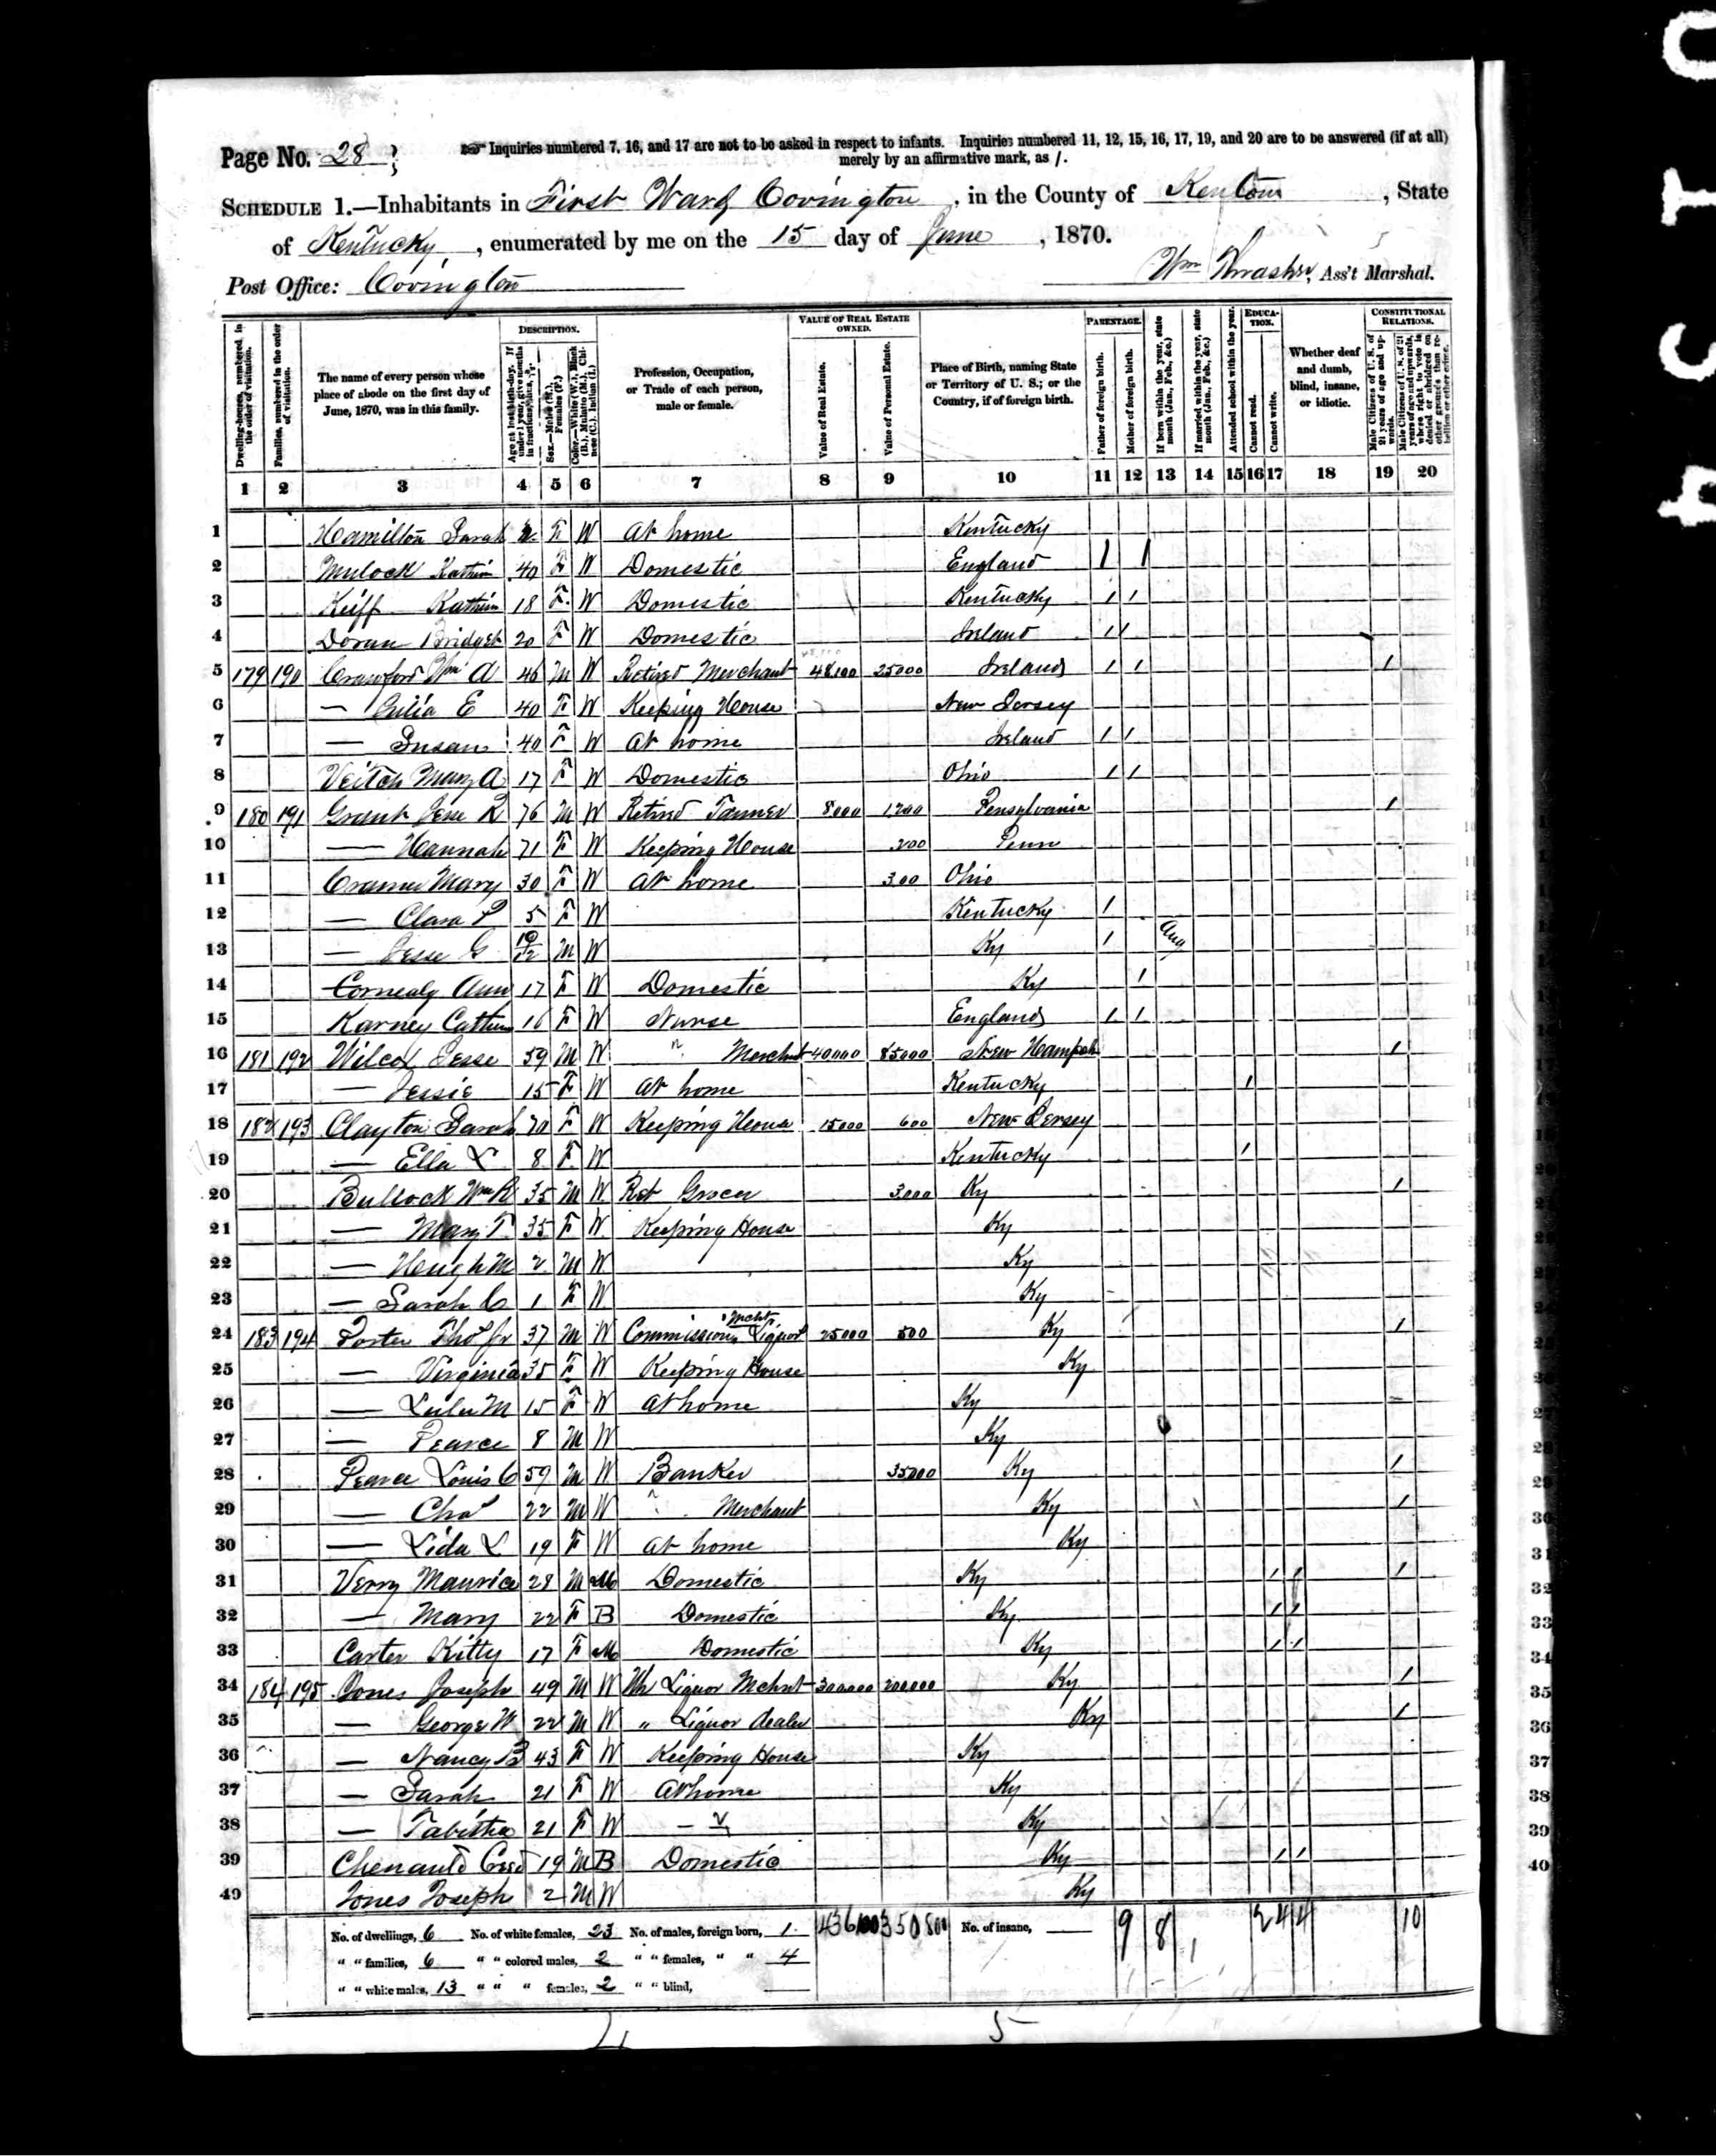 Page No. 28
Inquiries numbered 7, 16, and 17 are not to be asked in respect to infants. Inquiries numbered 11, 12, 15, 16, 17, 19, and 20 are to be answered (if at all)
merely by an affirmative mark, as /.
SCHEDULE 1.—Inhabitants in First Ward Covington, in the County of Kenton, State
of Kentucky, enumerated by me on the 15 day of June, 1870.
Post Office: Covington
Wm Thrasher, Ass't Marshal.
Dwelling-houses, numbered in the order of visitation.
Families, numbered in the order of visitation.
The name of every person whose place of abode on the first day of June, 1870, was in this family.
DESCRIPTION.
Age at last birth-day. If under 1 year, give months in fractions, thus, 3/12.
Sex.—Males (M.), Females (F.)
Color.—White (W.), Black (B.), Mulatto (M.), Chinese (C.), Indian (I.)
Profession, Occupation, or Trade of each person, male or female.
VALUE OF REAL ESTATE OWNED.
Value of Real Estate.
Value of Personal Estate.
Place of Birth, naming State or Territory of U. S.; or the Country, if of foreign birth.
PARENTAGE.
Father of foreign birth.
Mother of foreign birth.
If born within the year, state month (Jan., Feb., &c.)
If married within the year, state month (Jan., Feb., &c.)
Attended school within the year.
EDUCATION.
Cannot read.
Cannot write.
Whether deaf and dumb, blind, insane, or idiotic.
CONSTITUTIONAL RELATIONS.
Male Citizens of U. S. of 21 years of age and upwards.
Male Citizens of U. S. of 21 years of age and upwards, whose right to vote is denied or abridged on other grounds than rebellion or other crime.
1 2 3 4 5 6 7 8 9 10 11 12 13 14 15 16 17 18 19 20
1 Hamilton Sarah F W At home Kentucky
2 Mulock 40 F W Domestic England / /
3 Keiff 18 F W Domestic Kentucky / /
4 Doran Bridget 20 F W Domestic Ireland / /
5 179 190 Crawford Wm A 46 M W Retired Merchant 48,100 25000 Ireland / / /
6 — Julia E 40 F W Keeping House New Jersey
7 — Susan 40 F W At home Ireland / /
8 Veitch Mary A 17 F W Domestic Ohio / /
9 180 191 Grant Jesse R 76 M W Retired Tanner 8000 1,200 Pensylvania /
10 — Hannah 71 F W Keeping House 200 Penn
11 Cramer Mary 30 F W At home 300 Ohio
12 — Clara P 5 F W Kentucky /
13 — Jesse G 10/12 M W Ky / Aug
14 Cornealy Ann 17 F W Domestic Ky /
15 Karney 16 F W Nurse England / /
16 181 192 Wilcox Jesse 59 M W " Merchnt 40000 85000 New Hampsh /
17 — Jessie 15 F W At home Kentucky /
18 182 193 Clayton Sarah 70 F W Keeping House 15000 600 New Jersey
19 — Ella L 8 F W Kentucky /
20 Bullock Wm R 35 M W Ret Grocer 3000 Ky /
21 — Mary T. 35 F W Keeping House Ky
22 — Hugh M 2 M W Ky
23 — Sarah C 1 F W Ky
24 183 194 Porter Thos Jr 37 M W Commission Mcht, Liquor 25000 500 Ky /
25 — Virginia 35 F W Keeping House Ky
26 — Lulu M 15 F W At home Ky
27 — Pearce 8 M W Ky
28 Pearce Louis C 59 M W Banker 35000 Ky /
29 — Chas 22 M W " Merchant Ky /
30 — Lida L 19 F W At home Ky
31 Verry Maurice 28 M M Domestic Ky / / /
32 — Mary 22 F B Domestic Ky / /
33 Carter Kitty 17 F M Domestic Ky / /
34 184 195 Jones Joseph 49 M W Wh Liquor Mchnt 300000 200000 Ky /
35 — George W 22 M W " Liquor dealer Ky /
36 — Nancy B 43 F W Keeping House Ky
37 — Sarah 21 F W At home Ky
38 — Tabitha 21 F W — " Ky
39 Chenault 19 M B Domestic Ky / /
40 Jones Joseph 2 M W Ky
No. of dwellings, 6 No. of white females, 23 No. of males, foreign born, 1. 436100 350800 No. of insane, — 9 8 1 2 4 4 10
" " families, 6 " " colored males, 2 " " females, " " 4
" " white males, 13 " " " females, 2 " " blind, —
5